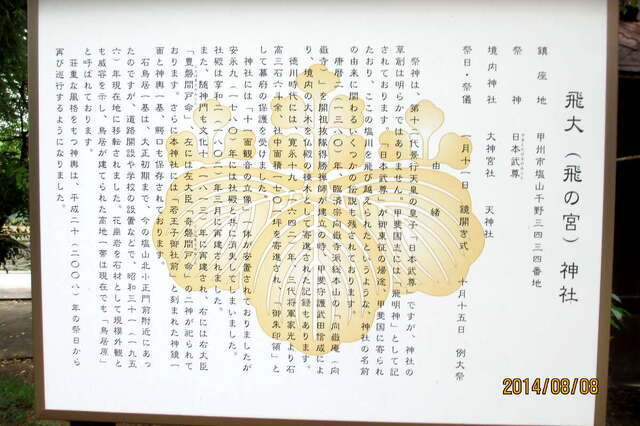 飛大（飛の宮）神社
鎮座地　甲州市塩山千野三四三四番地
祭神　日本武尊
境内神社　大神宮社　天神社
祭日・祭儀　一月十一日　鏡開き式　十月十五日　例大祭
由緒
祭神は、第十二代景行天皇の皇子「日本武尊」ですが、神社の
草創は明らかではありません。甲斐国志には「飛明神」として記
されております。「日本武尊」が御東征の帰途、甲斐国に寄られ
たおり、ここの塩川を飛び越えられたというような、神社の名前
の由来に関わるいくつかの伝説も残されております。
康暦二（一三八〇）年、臨済宗向嶽寺派総本山の「向嶽庵（向
嶽寺）」を開祖抜隊得勝禅師が建立の時、甲斐守護武田信成によ
り、境内の大木を仏殿の棟木として寄進された記録もあります。
徳川時代には、寛永十九（一六四二）年、三代将軍家光より石
高三石六斗余、社中面積一七〇一坪を寄進され、「御朱印領」と
して幕府の保護を受けました。
神社には「十一面観音の立像」一体が安置されておりましたが
安永九（一七八〇）年には社殿と共に消失してしまいました。
社殿は享和二（一八〇二）年三月に再建されました。
また、随神門も文化十（一八一三）年に再建され、右には右大臣
「豊磐間戸命」、左には左大臣「奇磐間戸命」の二神が祀られて
おります。さらに本神社には「若王子御社前」と刻まれた神鏡一
面と神輿一基、鰐口も保存されております。
石鳥居一基は、大正初期まで、今の塩山北小正門前附近にあっ
たのですが、道路開設や学校の設置などで、昭和三十一（一九五
六）年現在地に移転されました。花崗岩を石材として規模外観と
も威容を示し、鳥居が建てられた高地一帯は現在でも「鳥居原」
と呼ばれております。
荘重な風格をもつ神輿は、平成二十（二〇〇八）年の祭日から
再び巡行するようになりました。
2014/08/08